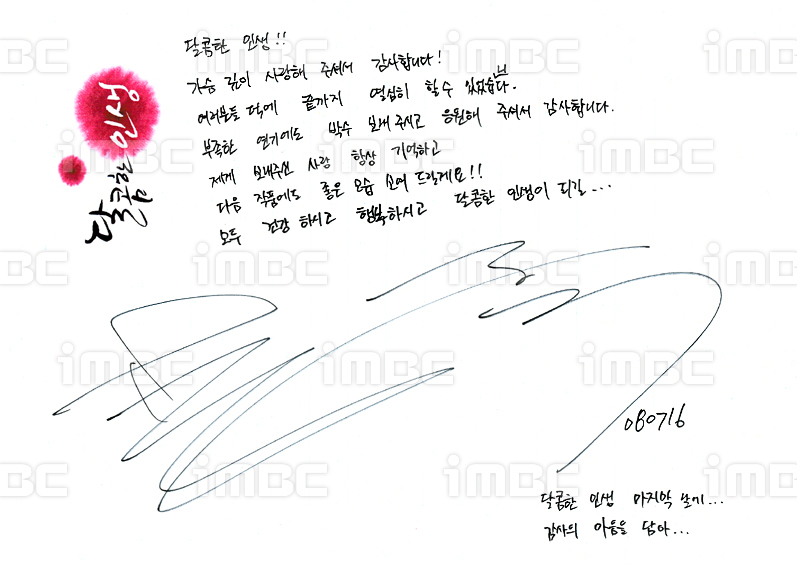 달콤한 인생!!
가슴 깊이 사랑해 주셔서 감사합니다!
여러분들 덕에 끝까지 열심히 할 수 있었습니다.
부족한 연기에도 박수 보내주시고 응원해 주셔서 감사합니다.
제게 보내주신 사랑 항상 기억하고
다음 작품에도 좋은 모습 보여 드릴게요!!
모두 건강 하시고 행복하시고 달콤한 인생이 되길...
달콤한 인생
080716
달콤한 인생 마지막 날에...
감사의 마음을 담아...
iMBC